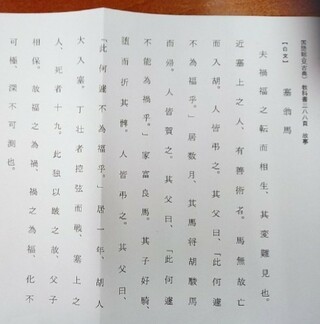 教科書二八八頁 故事
【白文】
塞翁馬
夫禍福之転而相生、其変難見也。
近塞上之人、有善術者。馬無故亡
而入胡。人皆弔之。其父曰、「此何遽
不為福乎。」居数月、其馬将胡駿馬
而帰。人皆賀之。其父曰、「此何遽
不能為禍乎。」家富良馬。其子好騎、
堕而折其髀。人皆弔之。其父曰、
「此何遽不為福乎。」居一年、胡人
大入塞。丁壮者控弦而戦、塞上之
人、死者十九。此独以跛之故、父子
相保。故福之為禍、禍之為福、化不
可極、深不可測也。